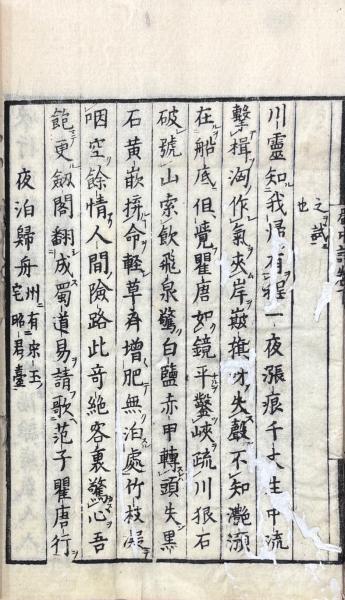 之ヲ試ニ
也
川靈知我歸有程一夜漲痕千丈生中流
擊楫洶作氣夾岸嶷旗才失聲不知灩澦
在船底但覺瞿唐如鏡平鑿峽疏川狠石
破號山索飲飛泉驚白鹽赤甲轉頭失黑
石黃嵌拚命輕草齊增肥無泊處竹枝凝
咽空餘情人間險路此奇絕客裏驚心吾
飽更劔閣翻成蜀道易請歌范子瞿唐行
夜泊歸舟州ニ有宋玉
宅昭君臺